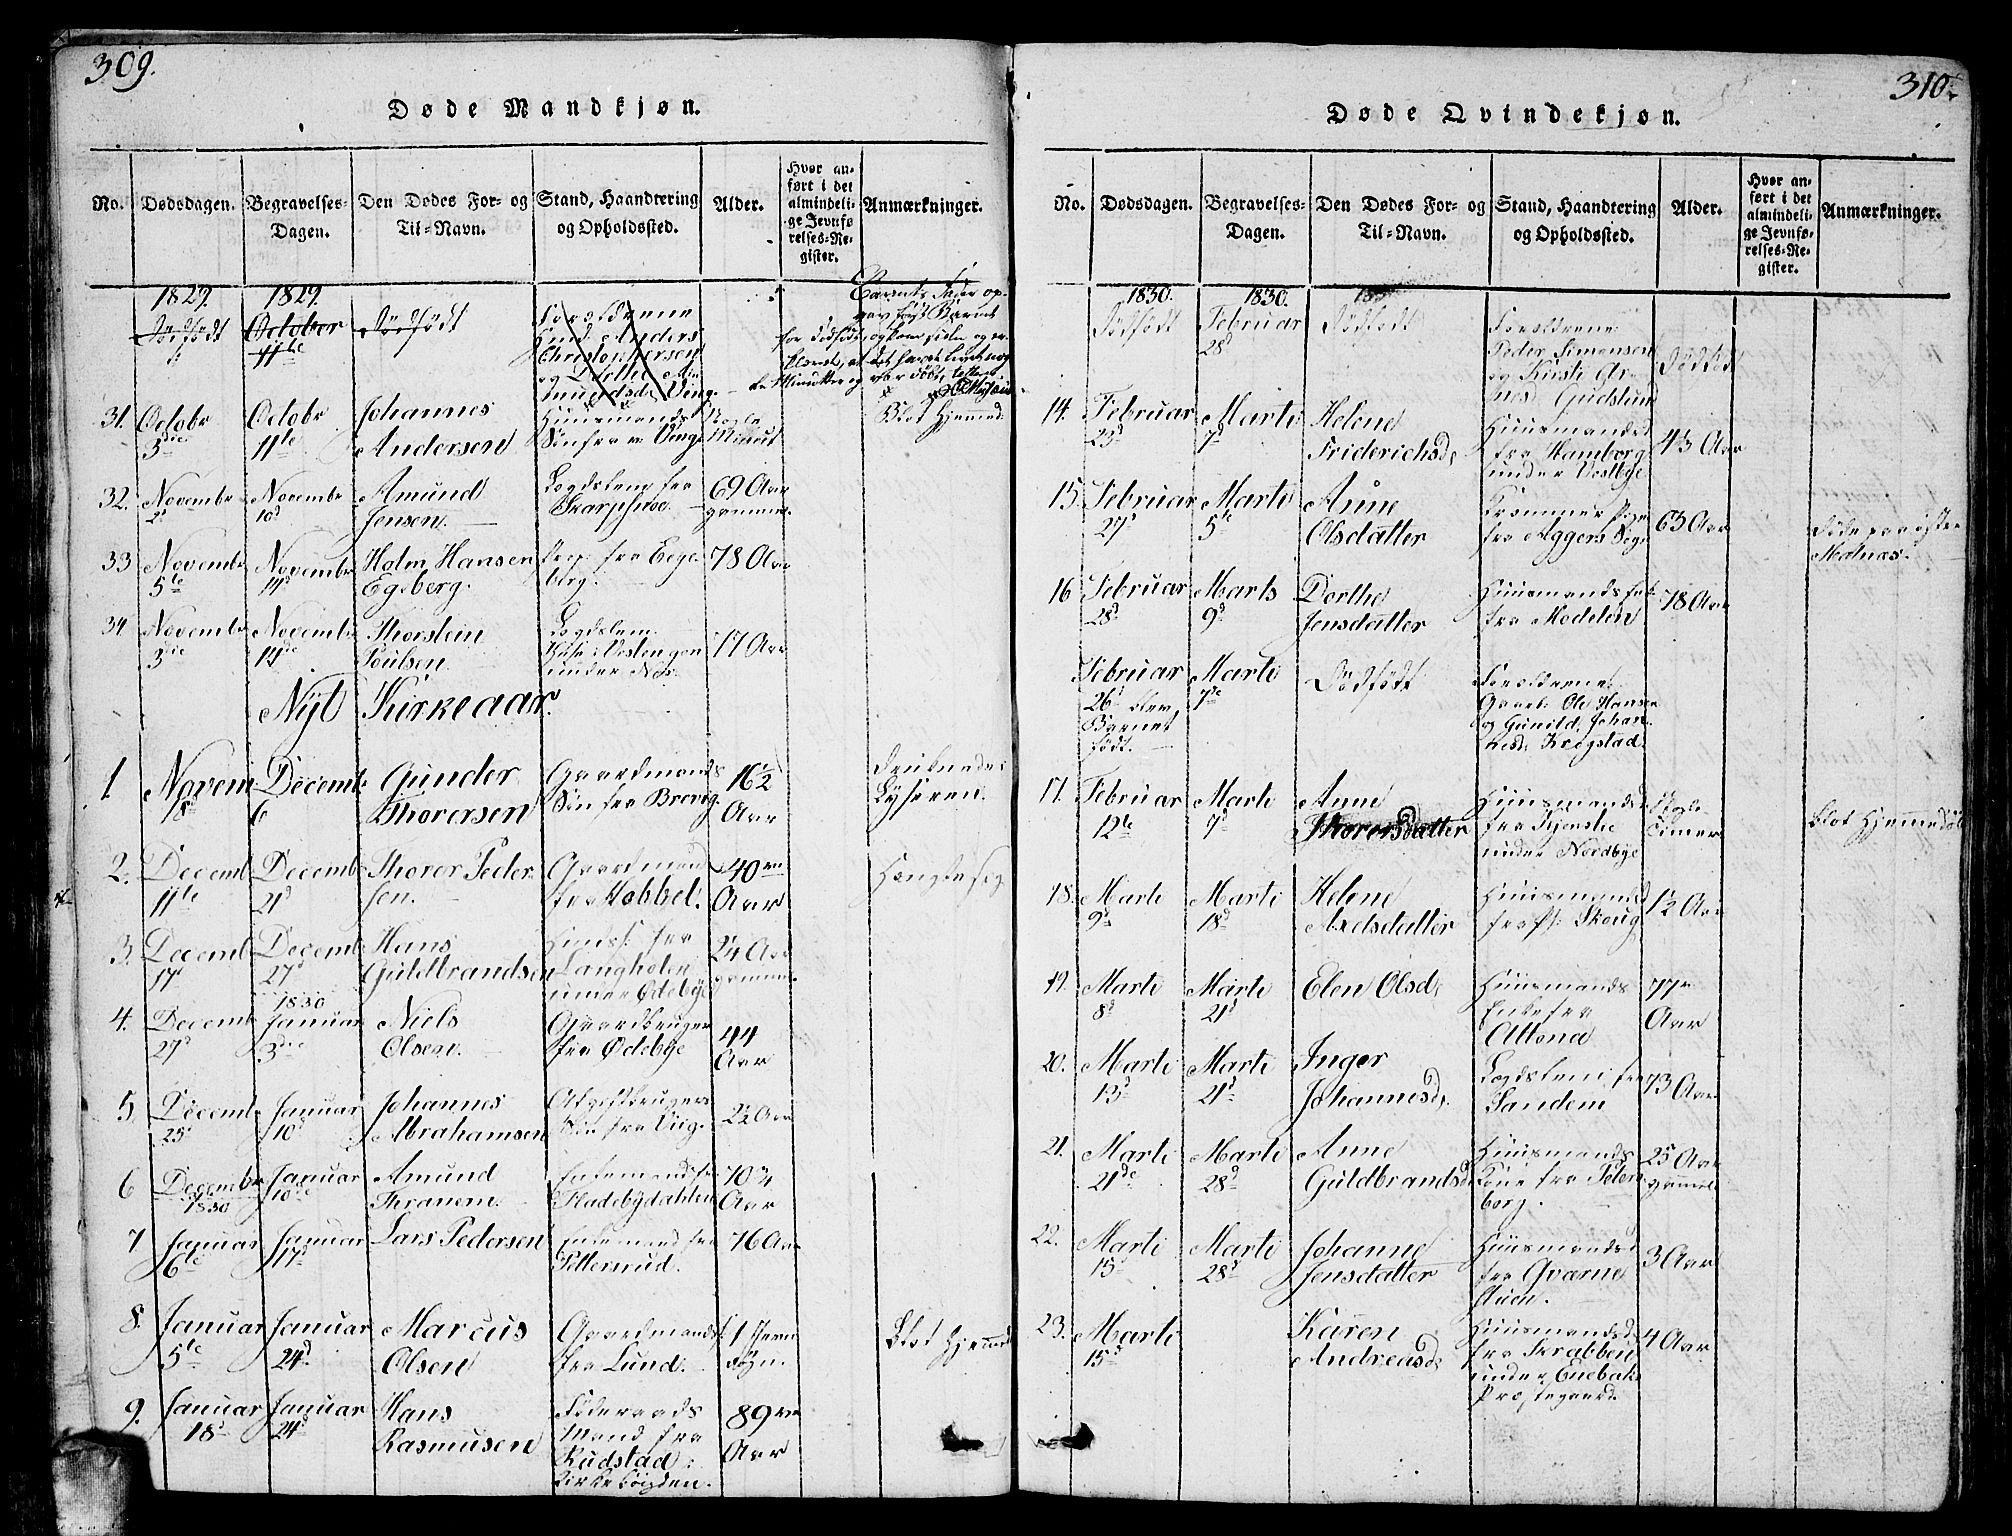 309.
Døde Mandkjøn.
No.
Dødsdagen.
Begravelses-
Dagen.
Den Dødes For- og
Til-Navn.
Stand, Haandtering
og Opholdssted.
Alder.
Hvor an-
ført i det
almindeli-
ge Jevnfø-
relses-Re-
gister.
Anmærkninger.
1829.
1829.
Dødfødt
October
11te
Dødfødt
Forældrene
Huusm. Anders
Christophersen
og Dorthe
31.
Octobr
3die
Octobr
11te
Johannes
Andersen
Huusmands
Søn fra Ving
Nogle
Minut
Blot Hjemmed.
32.
Novembr
2d
Novembr
10d
Amund
Jensen.
Logdslem fra
Skarphuoe.
69 Aar
gammel
33
Novembr
5te
Novembr
14d
Holm Hansen
Egeberg.
fra Eege-
berg.
78 Aar
34
Novembr
3die
Novembr
14de
Thorstein
Poulsen.
Logdslem
under Næs.
17 Aar
Nyt Kirkeaar.
1.
Novem
18d
Decemb
6
Gunder
Thorersen
Gaardmands
Søn fra Brevig.
16 1/2
Aar
Druknede i
Lyseren.
2.
Decemb
11te
Decemb
21d
Thorer Peder
sen.
Gaardmand
fra Mobbel.
40
Aar
Hængte sig
3.
Decemb
17d
Decemb
27d
Hans
Guldbrandsen
fra
Langholen
under Ødebye
24 Aar
gammel
4.
Decemb
27d
1830
Januar
3die
Niels
Olsen.
Gaardbruger
fra Ødebye
44
Aar
5
Decemb
25
Januar
10d
Johannes
Abrahamsen
Søn fra Viig.
2 1/2 Aar
6
Decembr
1830
Januar
10de
Amund
Thranem.
Enkemand fra
Fladebydahlen
70 3/4
Aar
7
Januar
6te
Januar
17d
Lars Pedersen
Enkemand fra
Petterrud.
76 Aar
8.
Januar
5te
Januar
24d
Marcus
Olsen
Gaardmands
fra Lund.
1
Døgn.
Blot Hjemmed
9.
Januar
18d
Januar
24d
Hans
Rasmusen
Føderaads
Mand fra
Rudstad i
Kirkebøigden.
89
Aar
310.
Døde Qvindekjøn.
No.
Dødsdagen.
Begravelses-
Dagen.
Den Dødes For- og
Til-Navn.
Stand, Haandtering
og Opholdssted.
Alder.
Hvor an-
ført i det
almindeli-
ge Jevnfø-
relses-Re-
gister.
Anmærkninger.
1830.
1830.
Dødfødt
Februar
28d
Dødfødt
Forældrene:
Peder Simensen
og Kirsti Ar-
nesd. Gudslund
Dødfødt
14.
Februar
23d
Marti
7d
Helene
Friderichsd.
Huusmandsd
fra Hamborg
under Vestbye
43 Aar
15.
Februar
27d
Marti
5te
Anne
Olsdatter
fra Aggers Sogn
63 Aar
Døde paa østre
Matnæs.
16
Februar
28d
Marts
9d
Dorthe
Jensdatter
Huusmands
fra Modelen
78 Aar
Februar
26d blev
Barnet
født.
Marti
7de
Dødfødt
Forældrene:
Gaarb. Ole Hansen
og Gunild Johan-
nesd. Krogstad.
17.
Februar
12te
Marti
7d
Anne
Thorersdatter
Huusmandsd
fra Kjenslie
under Nordbye
Nogle
Timer
Blot Hjemmedøbt
18.
Marti
9d
Marti
18d
Helene
Axelsdatter
Huusmandsd
fra Skoug
1/2 Aar
19.
Marti
8d
Marti
21d
Elen Olsd.
Huusmands
Enke fra
Altona
77
Aar
20.
Marti
13d
Marti
21d
Inger
Johannesd.
Logdslem fra
Sandem
73 Aar
21.
Marti
21de
Marti
28d
Anne
Guldbrandsd.
Huusmands
Kone fra Peters
borg.
25 Aar
gammel
22.
Marti
15d
Marti
28d
Johanne
Jensdatter
Huusmandsd
fra Qværne
stuen.
3 Aar
23.
Marti
15d
Karen
Andreasd.
Huusmandsd.
fra Krabben
under Enebaks
Præstegaard.
4 Aar